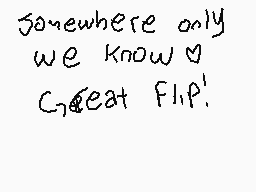 somewhere only
we know ♡
Great Flip!